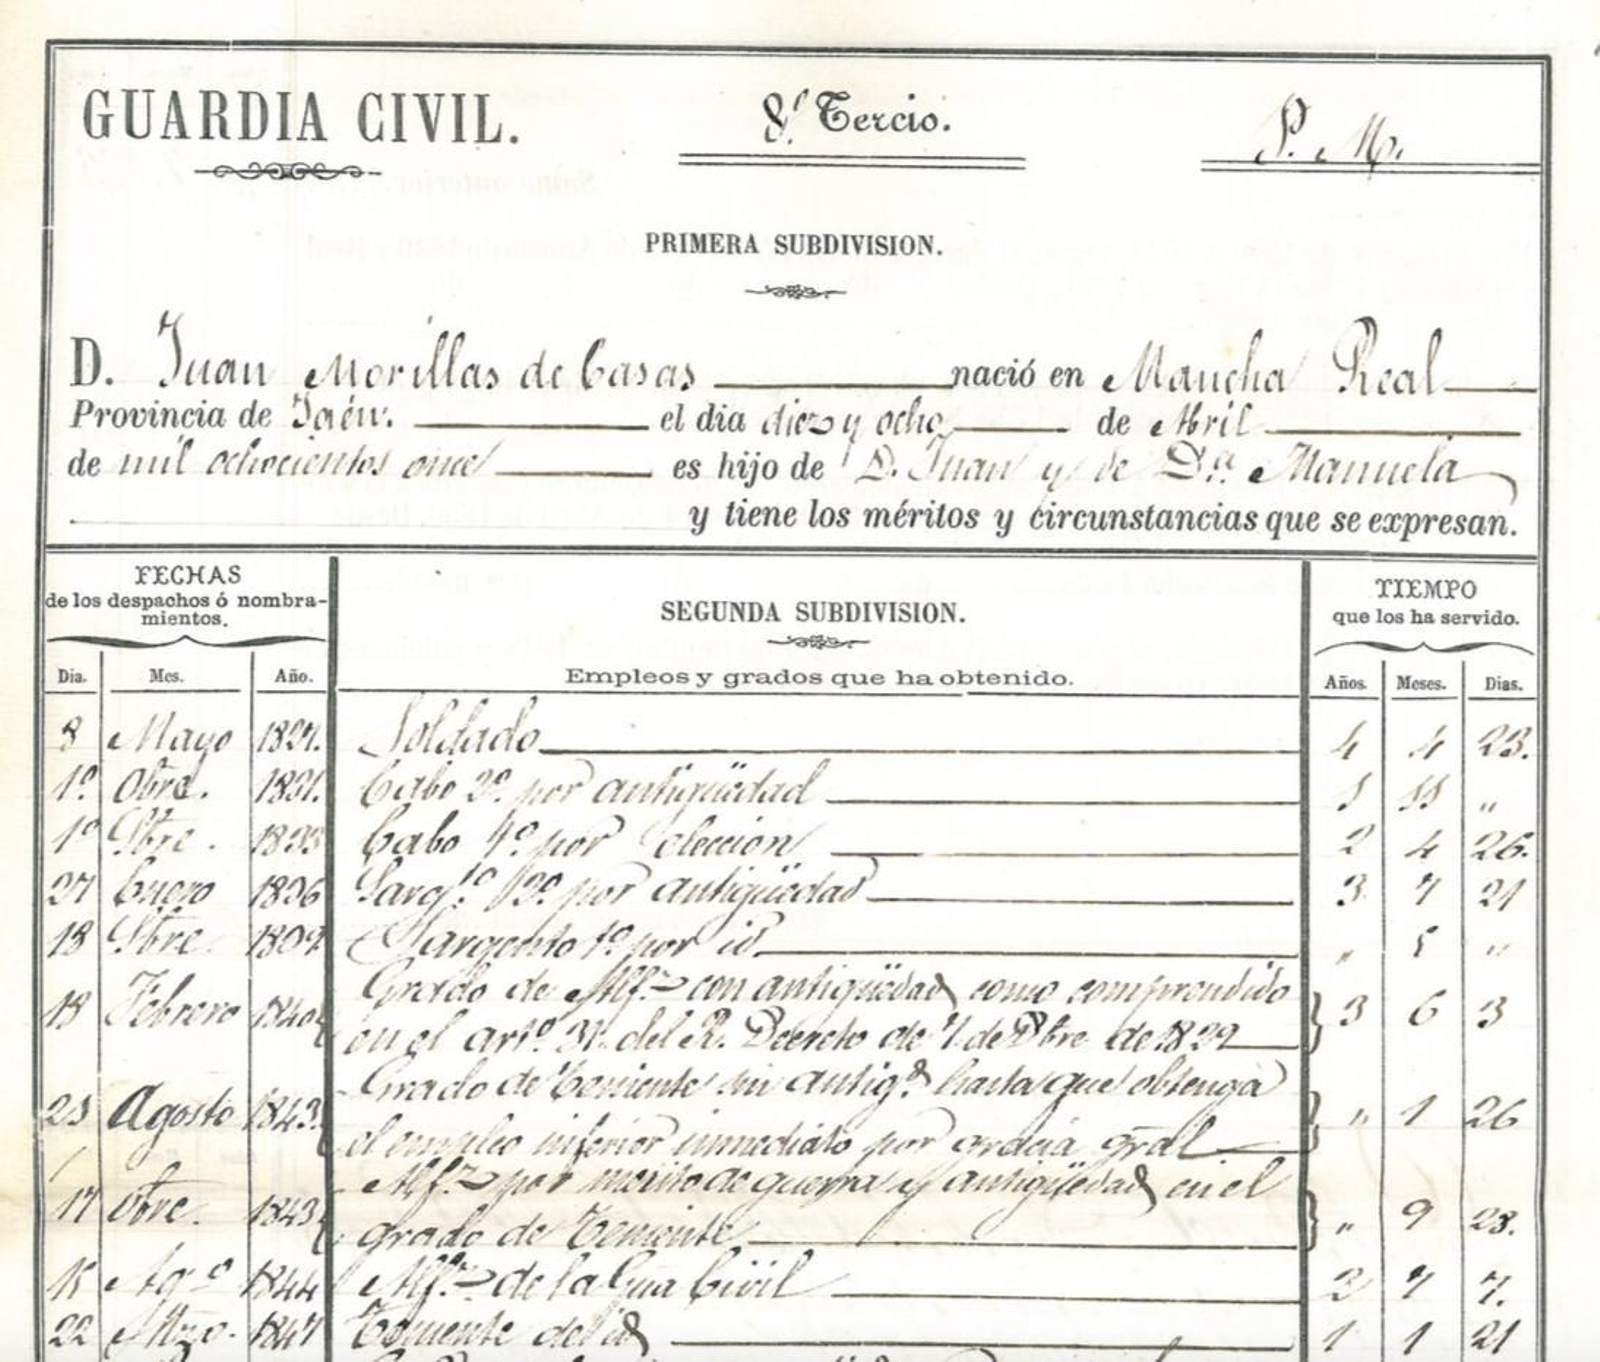 GUARDIA CIVIL.
8º Tercio.
P. M.
PRIMERA SUBDIVISION.
D. Juan Morillas de Casas nació en Mancha Real
Provincia de Jaén. el dia diez y ocho de Abril
de mil ochocientos once es hijo de D. Juan y de Dª. Manuela
y tiene los méritos y circunstancias que se expresan.
FECHAS
de los despachos ó nombra-
mientos.
SEGUNDA SUBDIVISION.
TIEMPO
que los ha servido.
Dia. Mes. Año. Empleos y grados que ha obtenido. Años. Meses. Dias.
8 Mayo 1827. Soldado 4 4 23.
1º. Obre. 1831. Cabo 2º. por antigüedad 1 11 "
1º 9bre. 1833 Cabo 1º. por eleccion 2 4 26.
27 Enero 1836 Sargtº. 2º. por antigüedad 3 7 21
18 9bre. 1839 Sargento 1º. por id. " 5 "
18 Febrero 1840 Grado de Alfz. con antigüedad como comprendido 3 6 3
en el artº. 31. del R. Decreto de 1. de de
23 Agosto 1843. Grado de Teniente sin antigd. hasta que obtenga " 1 26
el empleo inferior inmediato por gracia gral
17 Obre. 1843 Alfz. por mérito de guerra y antigüedad en el " 9 28.
grado de Teniente
15 Agº 1844 Alfz. de la Gua Civil 2 7 7.
22 Mzo. 1847 Teniente de id 1 1 21